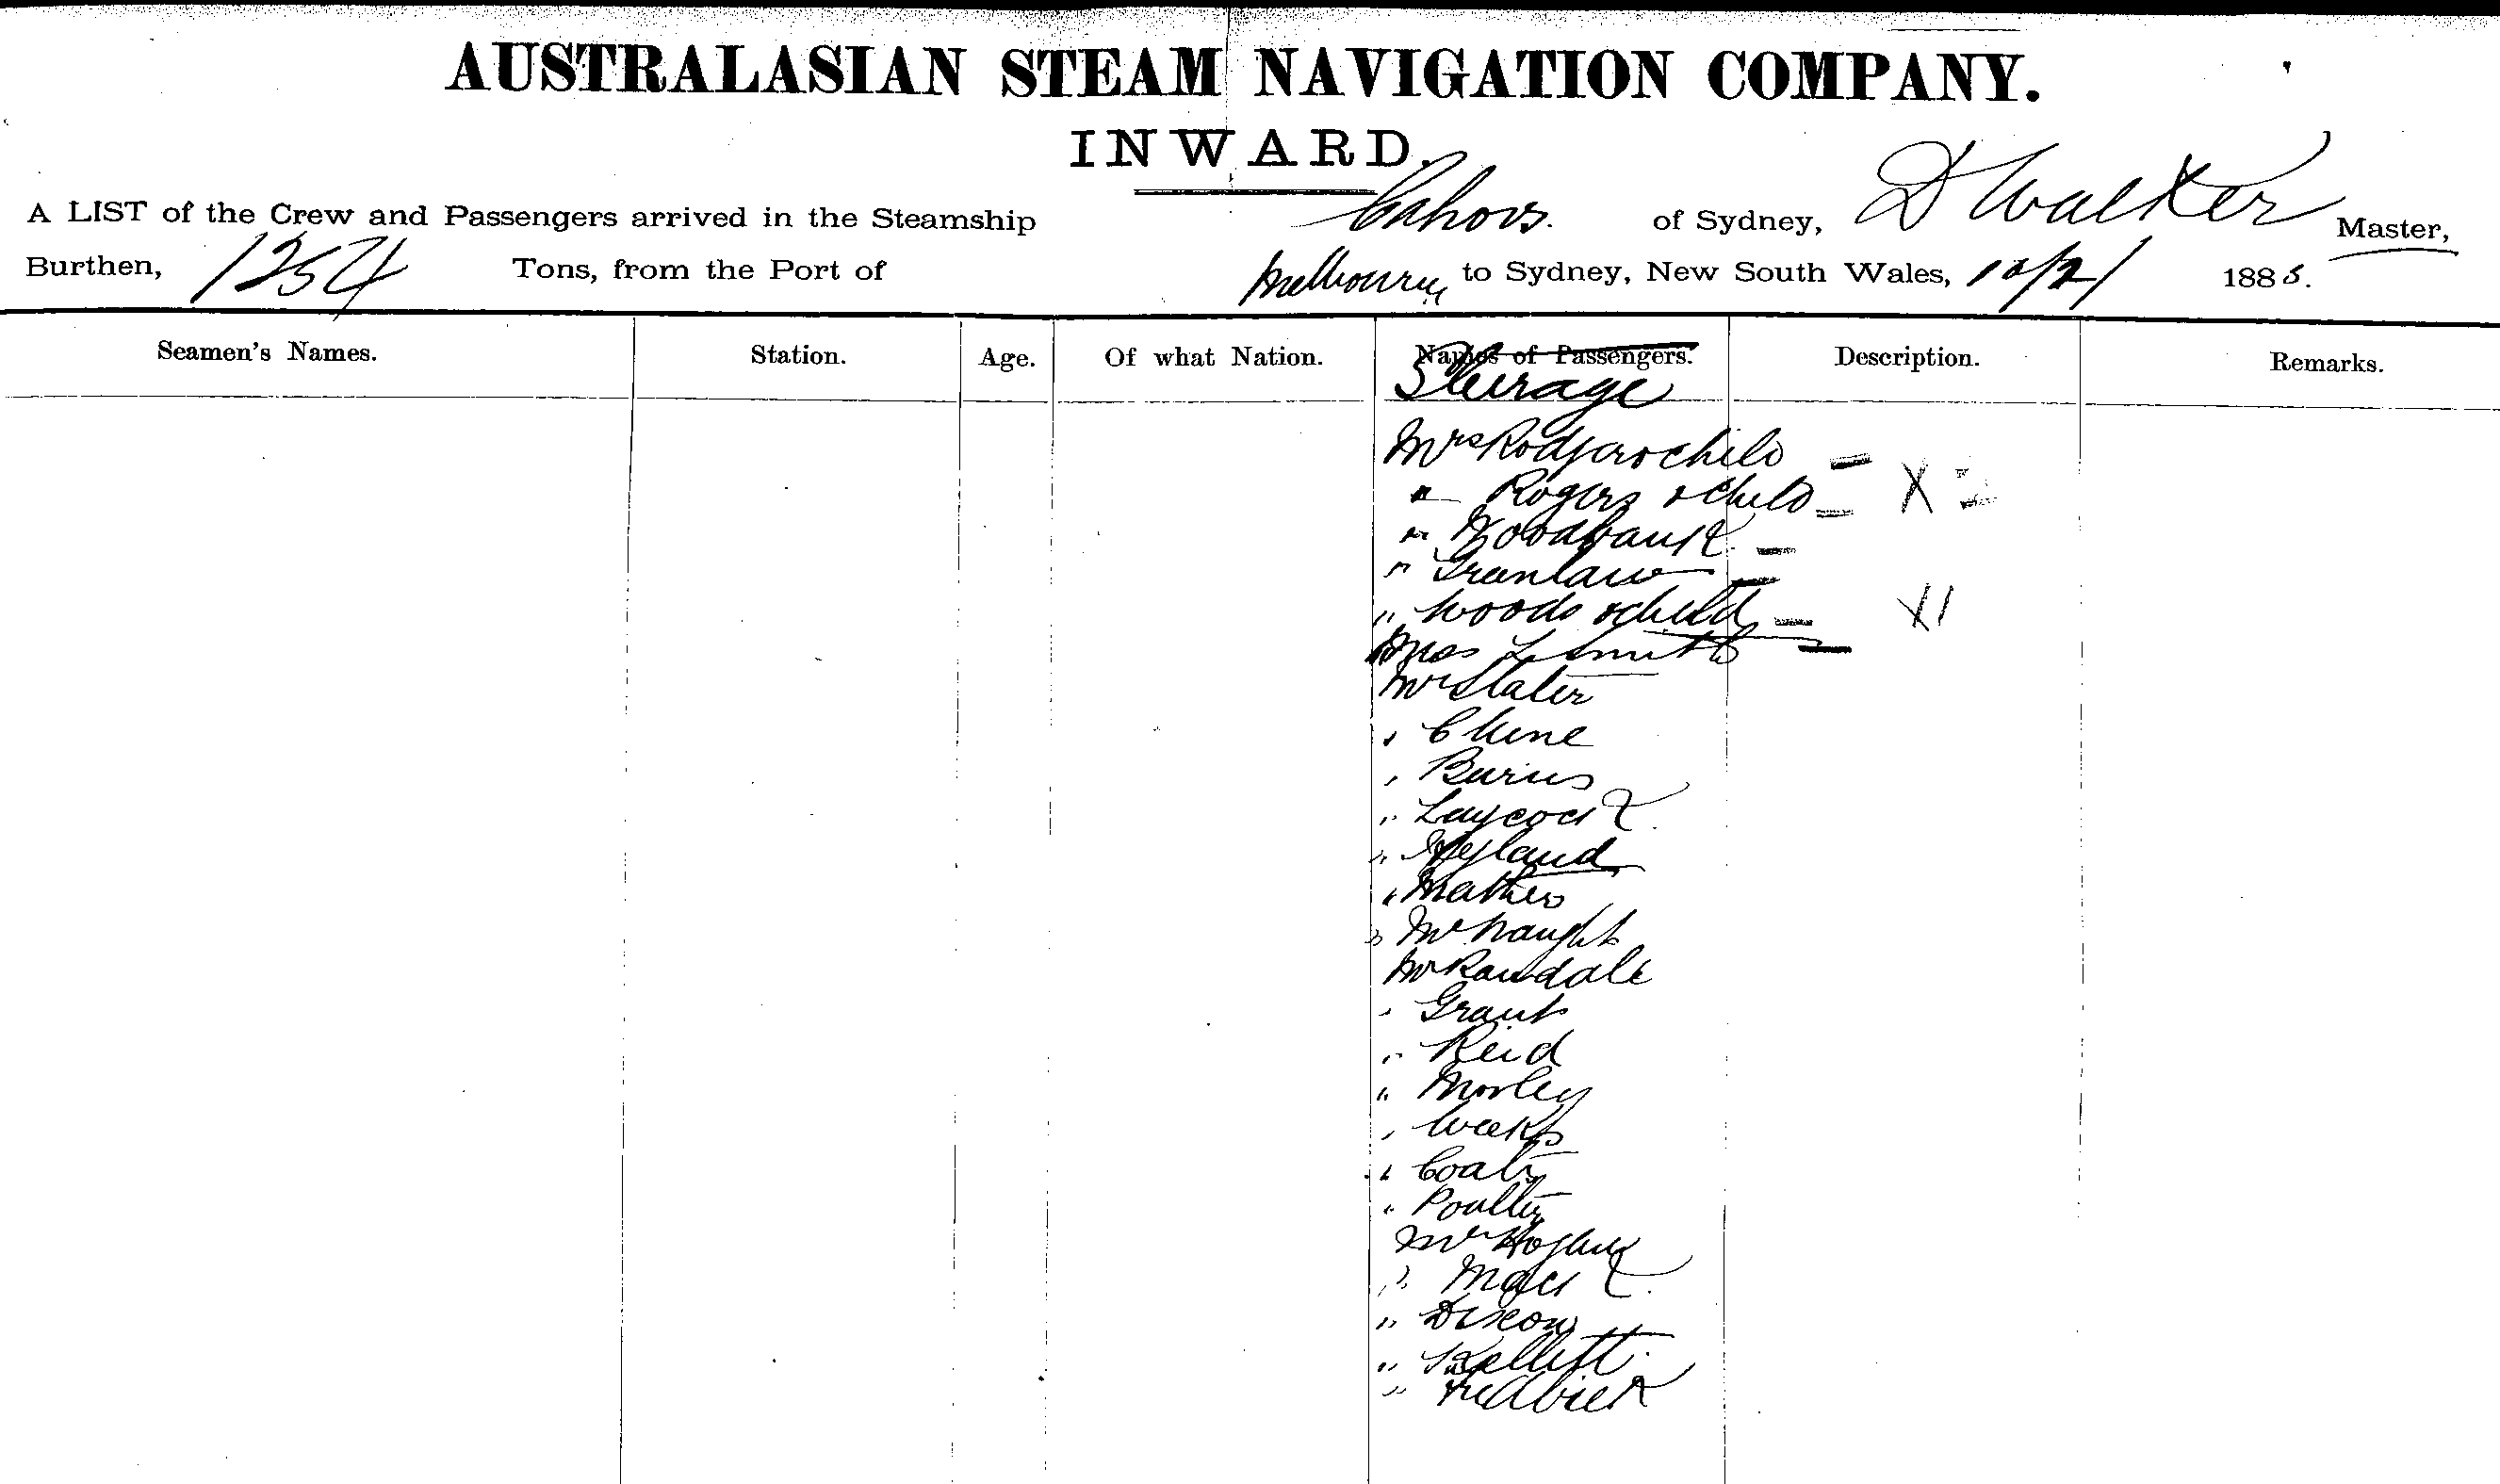 AUSTRALASIAN STEAM NAVIGATION COMPANY.
INWARD.
A LIST of the Crew and Passengers arrived in the Steamship Cahors. of Sydney, D Walker Master,
Burthen, 1254 Tons, from the Port of Melbourne to Sydney, New South Wales, 10/2/ 1885.
Seamen's Names. Station. Age. Of what Nation. Names of Passengers. Description. Remarks.
Steerage
Mrs Rodger child
" Rogers & child X
" Woodbank
" Greenlaw
" Woods & child X1
Miss L Smith
Mr Slater
" Chene
" Burns
" Laycock
" Hyland
" Mathers
" McNaught
Mr Ransdale
" Grant
" Reid
" Morley
" Weeks
" Coats
" Poulter
Mr
" Mack
" Dixon
" Kellett